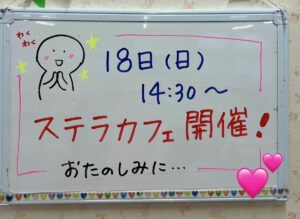 わく
わく
18日(日)
14:30~
ステラカフェ開催!
おたのしみに…